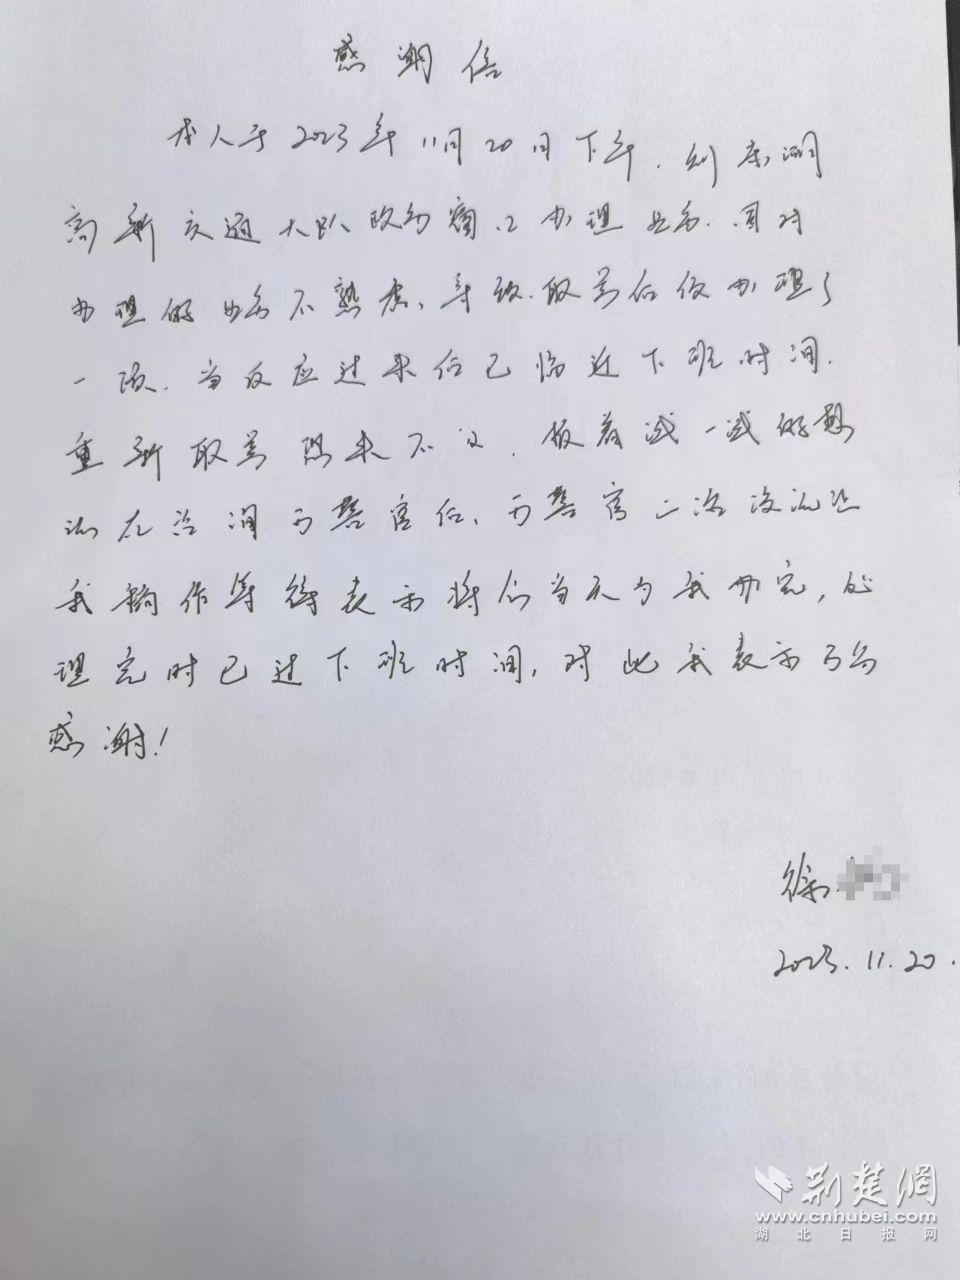 感谢信
本人于2023年11月20日下午.到荆门
高新交通大队政务窗口办理业务.因对
办理的业务不熟悉、导致.取号后仅办理了
一项.当反应过来后已临近下班时间.
重新取号恐来不及.抱着试一试的想
法在咨询 警官后、 警官二次没流让
我 作等待表示将 当天为我办完,处
理完时已过下班时间,对此我表示
感谢!
徐
2023.11.20.
荆楚网
www.cnhubei.com
湖北日报网